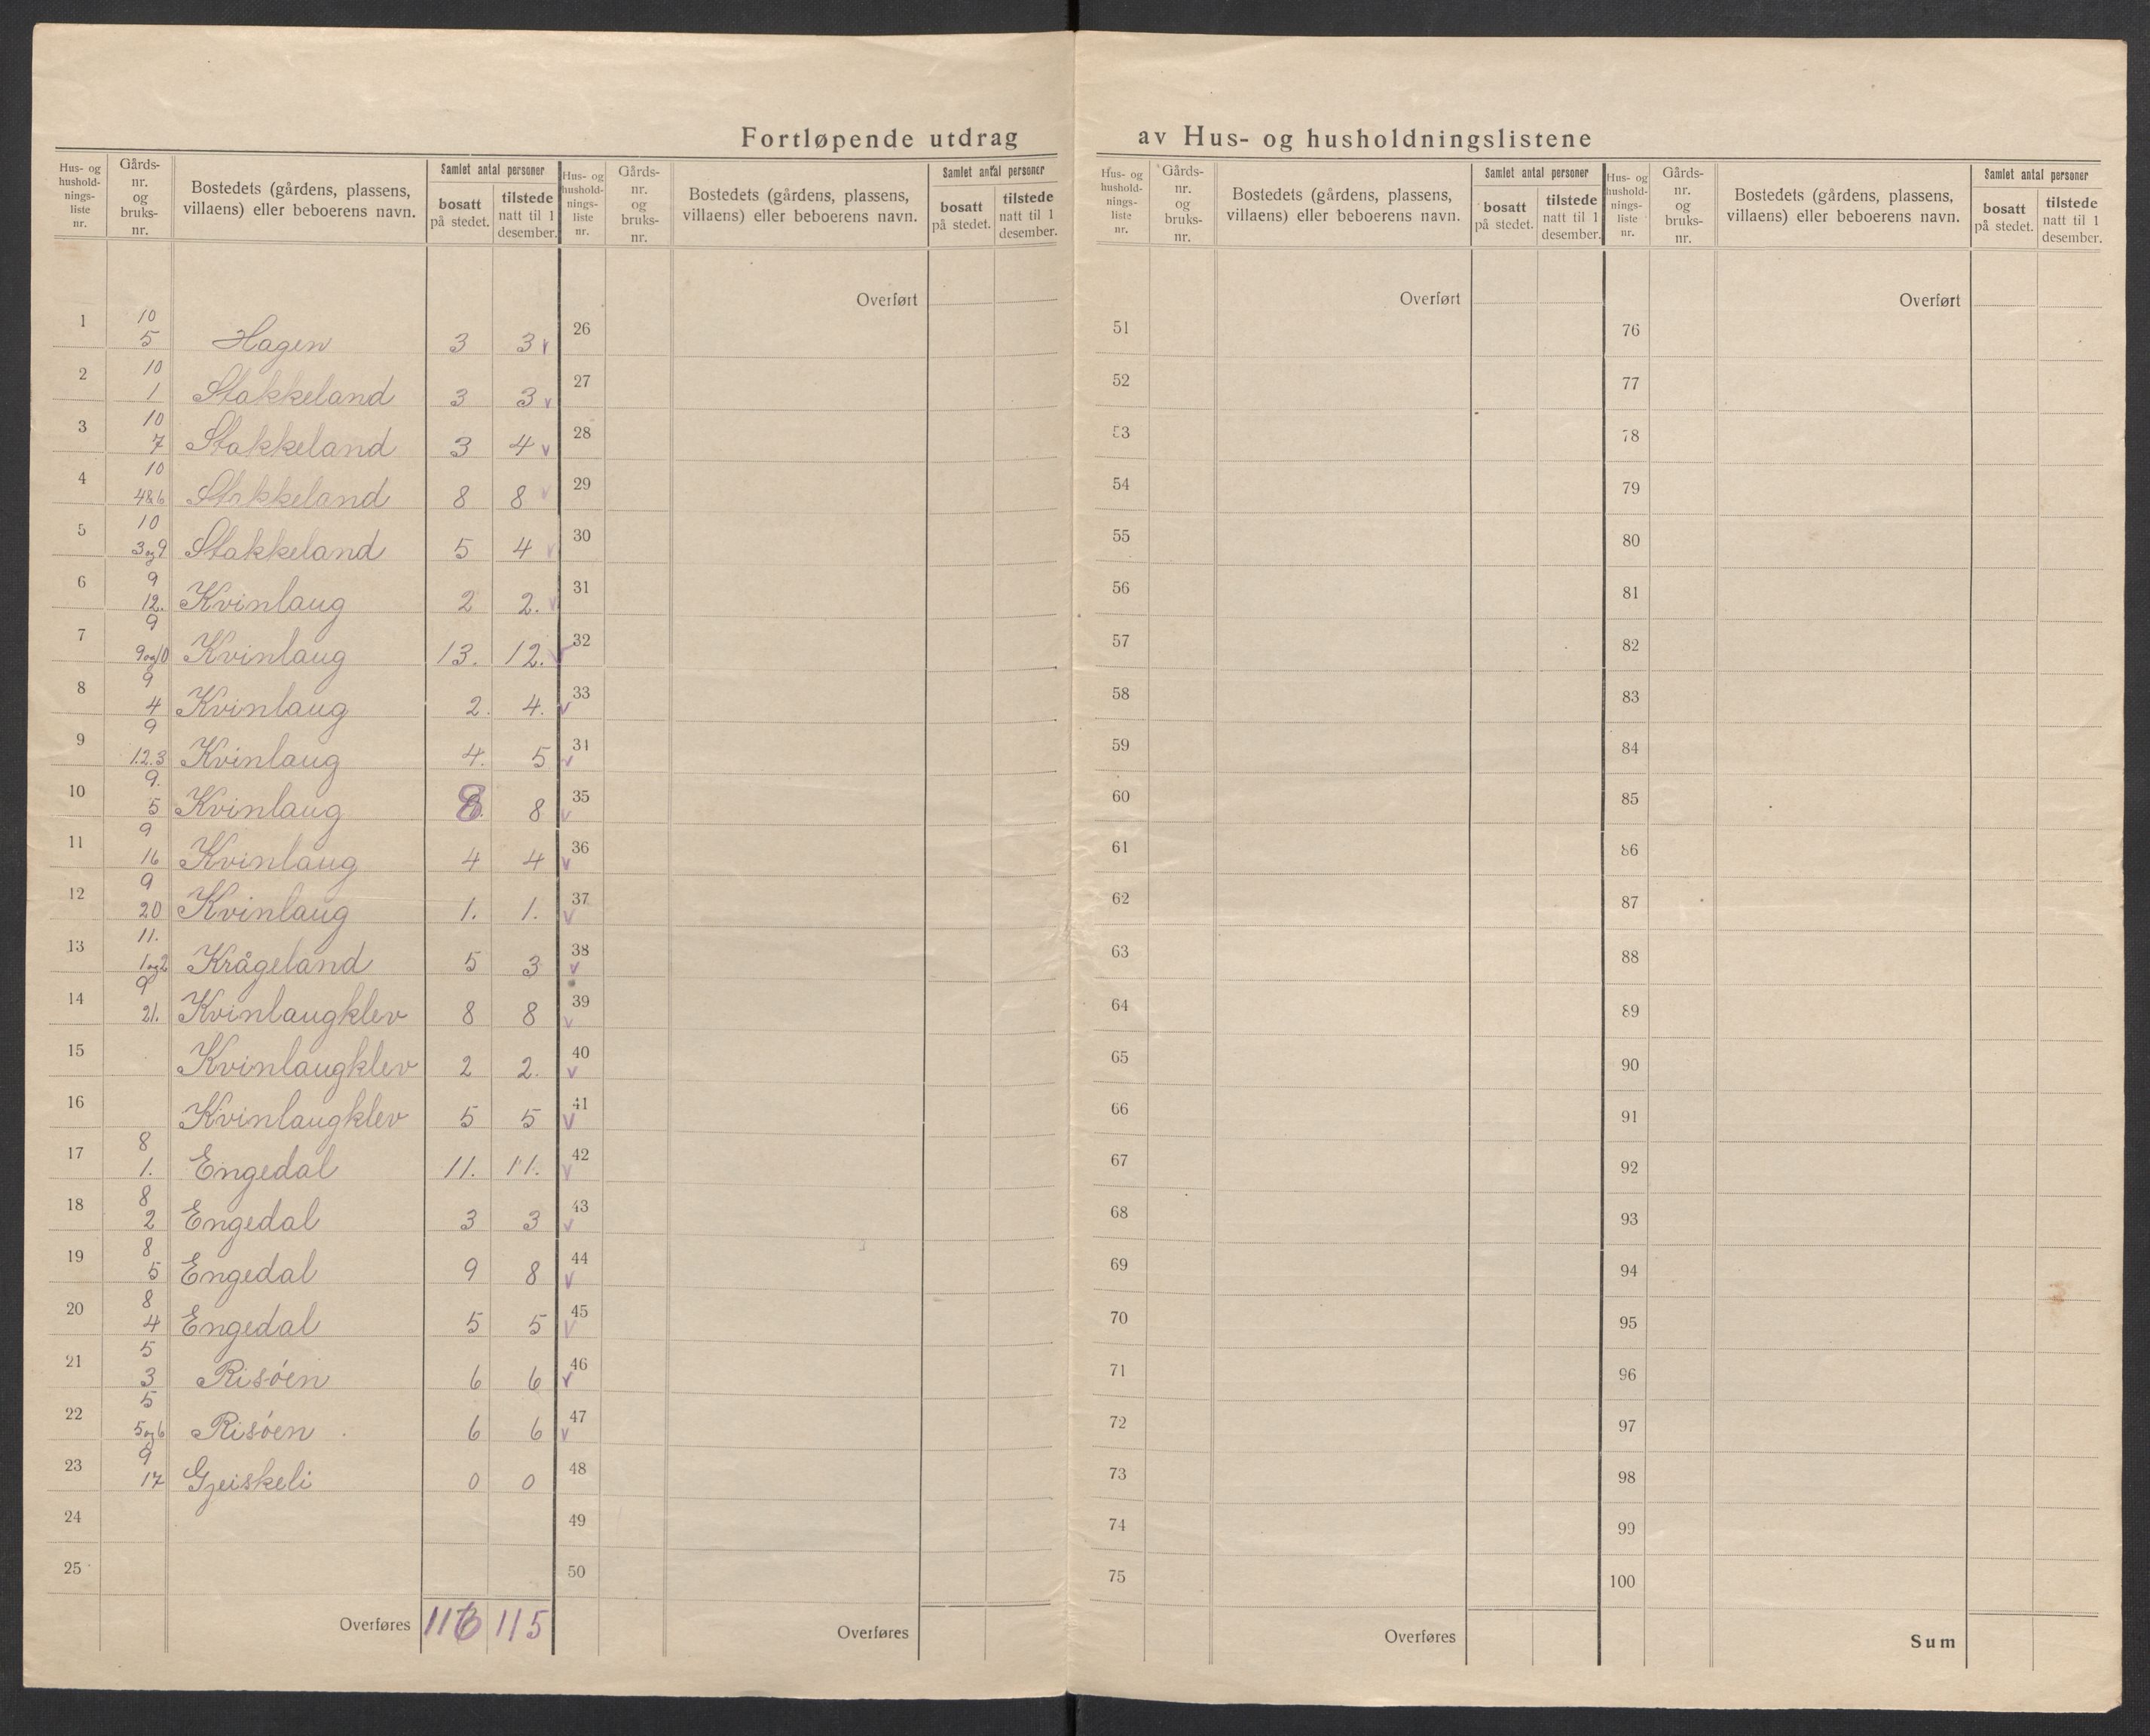 Fortløpende utdrag av Hus- og husholdningslistene
Hus- og hushold-nings-liste nr. Gårds-nr. og bruks-nr. Bostedets (gårdens, plassens, villaens) eller beboerens navn. Samlet antal personer bosatt på stedet. tilstede natt til 1 desember.
Hus- og hushold-nings-liste nr. Gårds-nr. og bruks-nr. Bostedets (gårdens, plassens, villaens) eller beboerens navn. Samlet antal personer bosatt på stedet. tilstede natt til 1 desember.
Hus- og hushold-nings-liste nr. Gårds-nr. og bruks-nr. Bostedets (gårdens, plassens, villaens) eller beboerens navn. Samlet antal personer bosatt på stedet. tilstede natt til 1 desember.
Hus- og hushold-nings-liste nr. Gårds-nr. og bruks-nr. Bostedets (gårdens, plassens, villaens) eller beboerens navn. Samlet antal personer bosatt på stedet. tilstede natt til 1 desember.
Overført Overført Overført
1 10 5 Hagen 3 3 v 26 51 76
2 10 1 Stakkeland 3 3 v 27 52 77
3 10 7 Stakkeland 3 4 v 28 53 78
4 10 4&6 Stakkeland 8 8 v 29 54 79
5 10 3og9 Stakkeland 5 4 v 30 55 80
6 9 12. Kvinlaug 2 2. v 31 56 81
7 9 9og10 Kvinlaug 13. 12. v 32 57 82
8 9 4 Kvinlaug 2. 4. v 33 58 83
9 9 1.2.3 Kvinlaug 4. 5 v 34 59 84
10 9. 5 Kvinlaug 8 8 v 35 60 85
11 9 16 Kvinlaug 4 4 v 36 61 86
12 9 20 Kvinlaug 1. 1. v 37 62 87
13 11. 1og2 Krågeland 5 3 v 38 63 88
14 9 21. Kvinlaugklev 8 8 v 39 64 89
15 Kvinlaugklev 2 2. v 40 65 90
16 Kvinlaugklev 5 5 v 41 66 91
17 8 1. Engedal 11. 11. v 42 67 92
18 8 2 Engedal 3 3 v 43 68 93
19 8 5 Engedal 9 8 v 44 69 94
20 8 4 Engedal 5 5 v 45 70 95
21 5 3 Risöen 6 6 v 46 71 96
22 5 5og6 Risöen 6 6 v 47 72 97
23 9 17 Gjeiskeli 0 0 48 73 98
24 49 74 99
25 50 75 100
Overføres 116 115 Overføres Overføres Sum